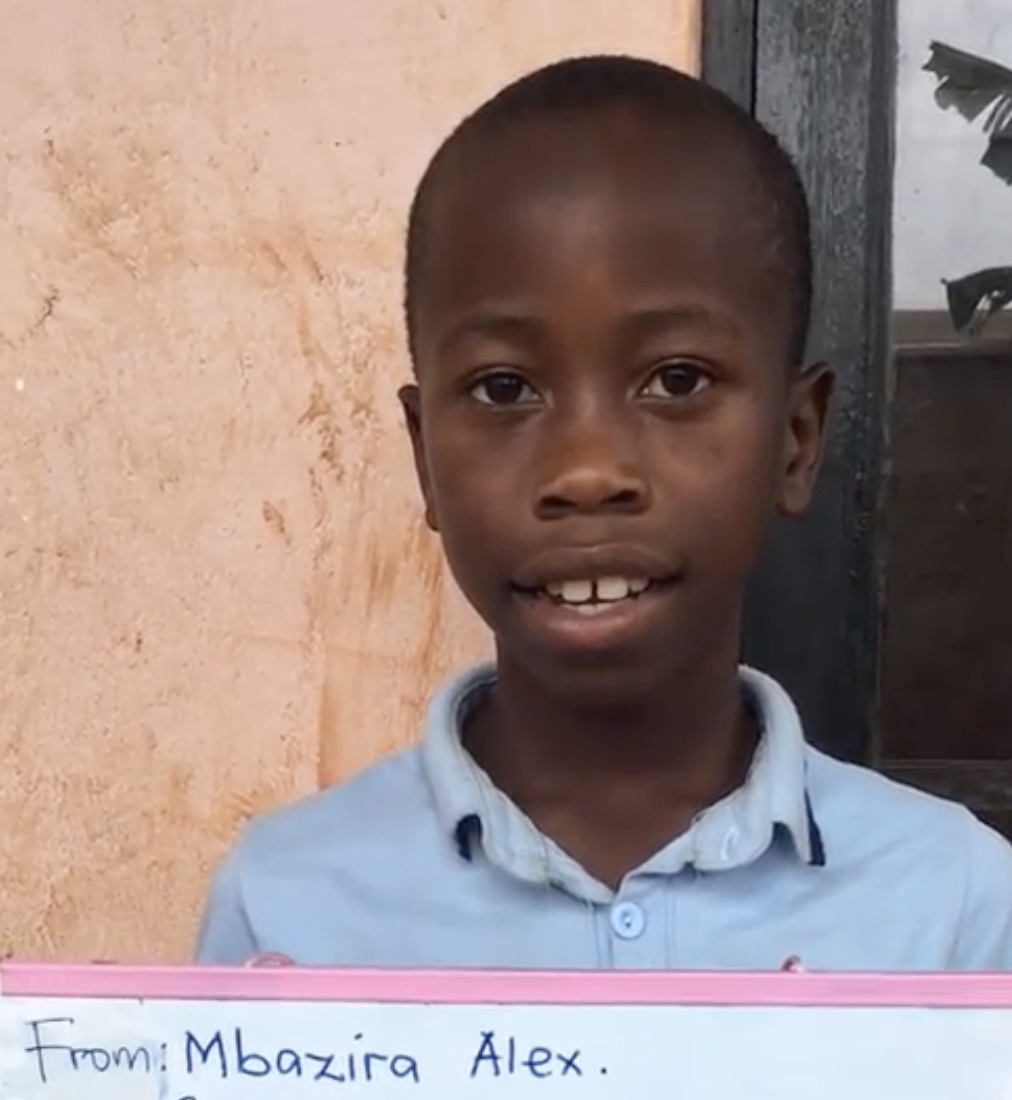 From: Mbazira Alex.